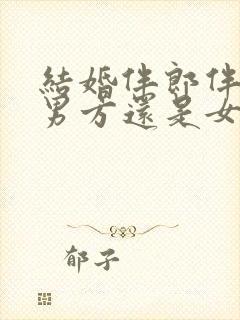 結婚伴郎伴
男方還是女
郁子